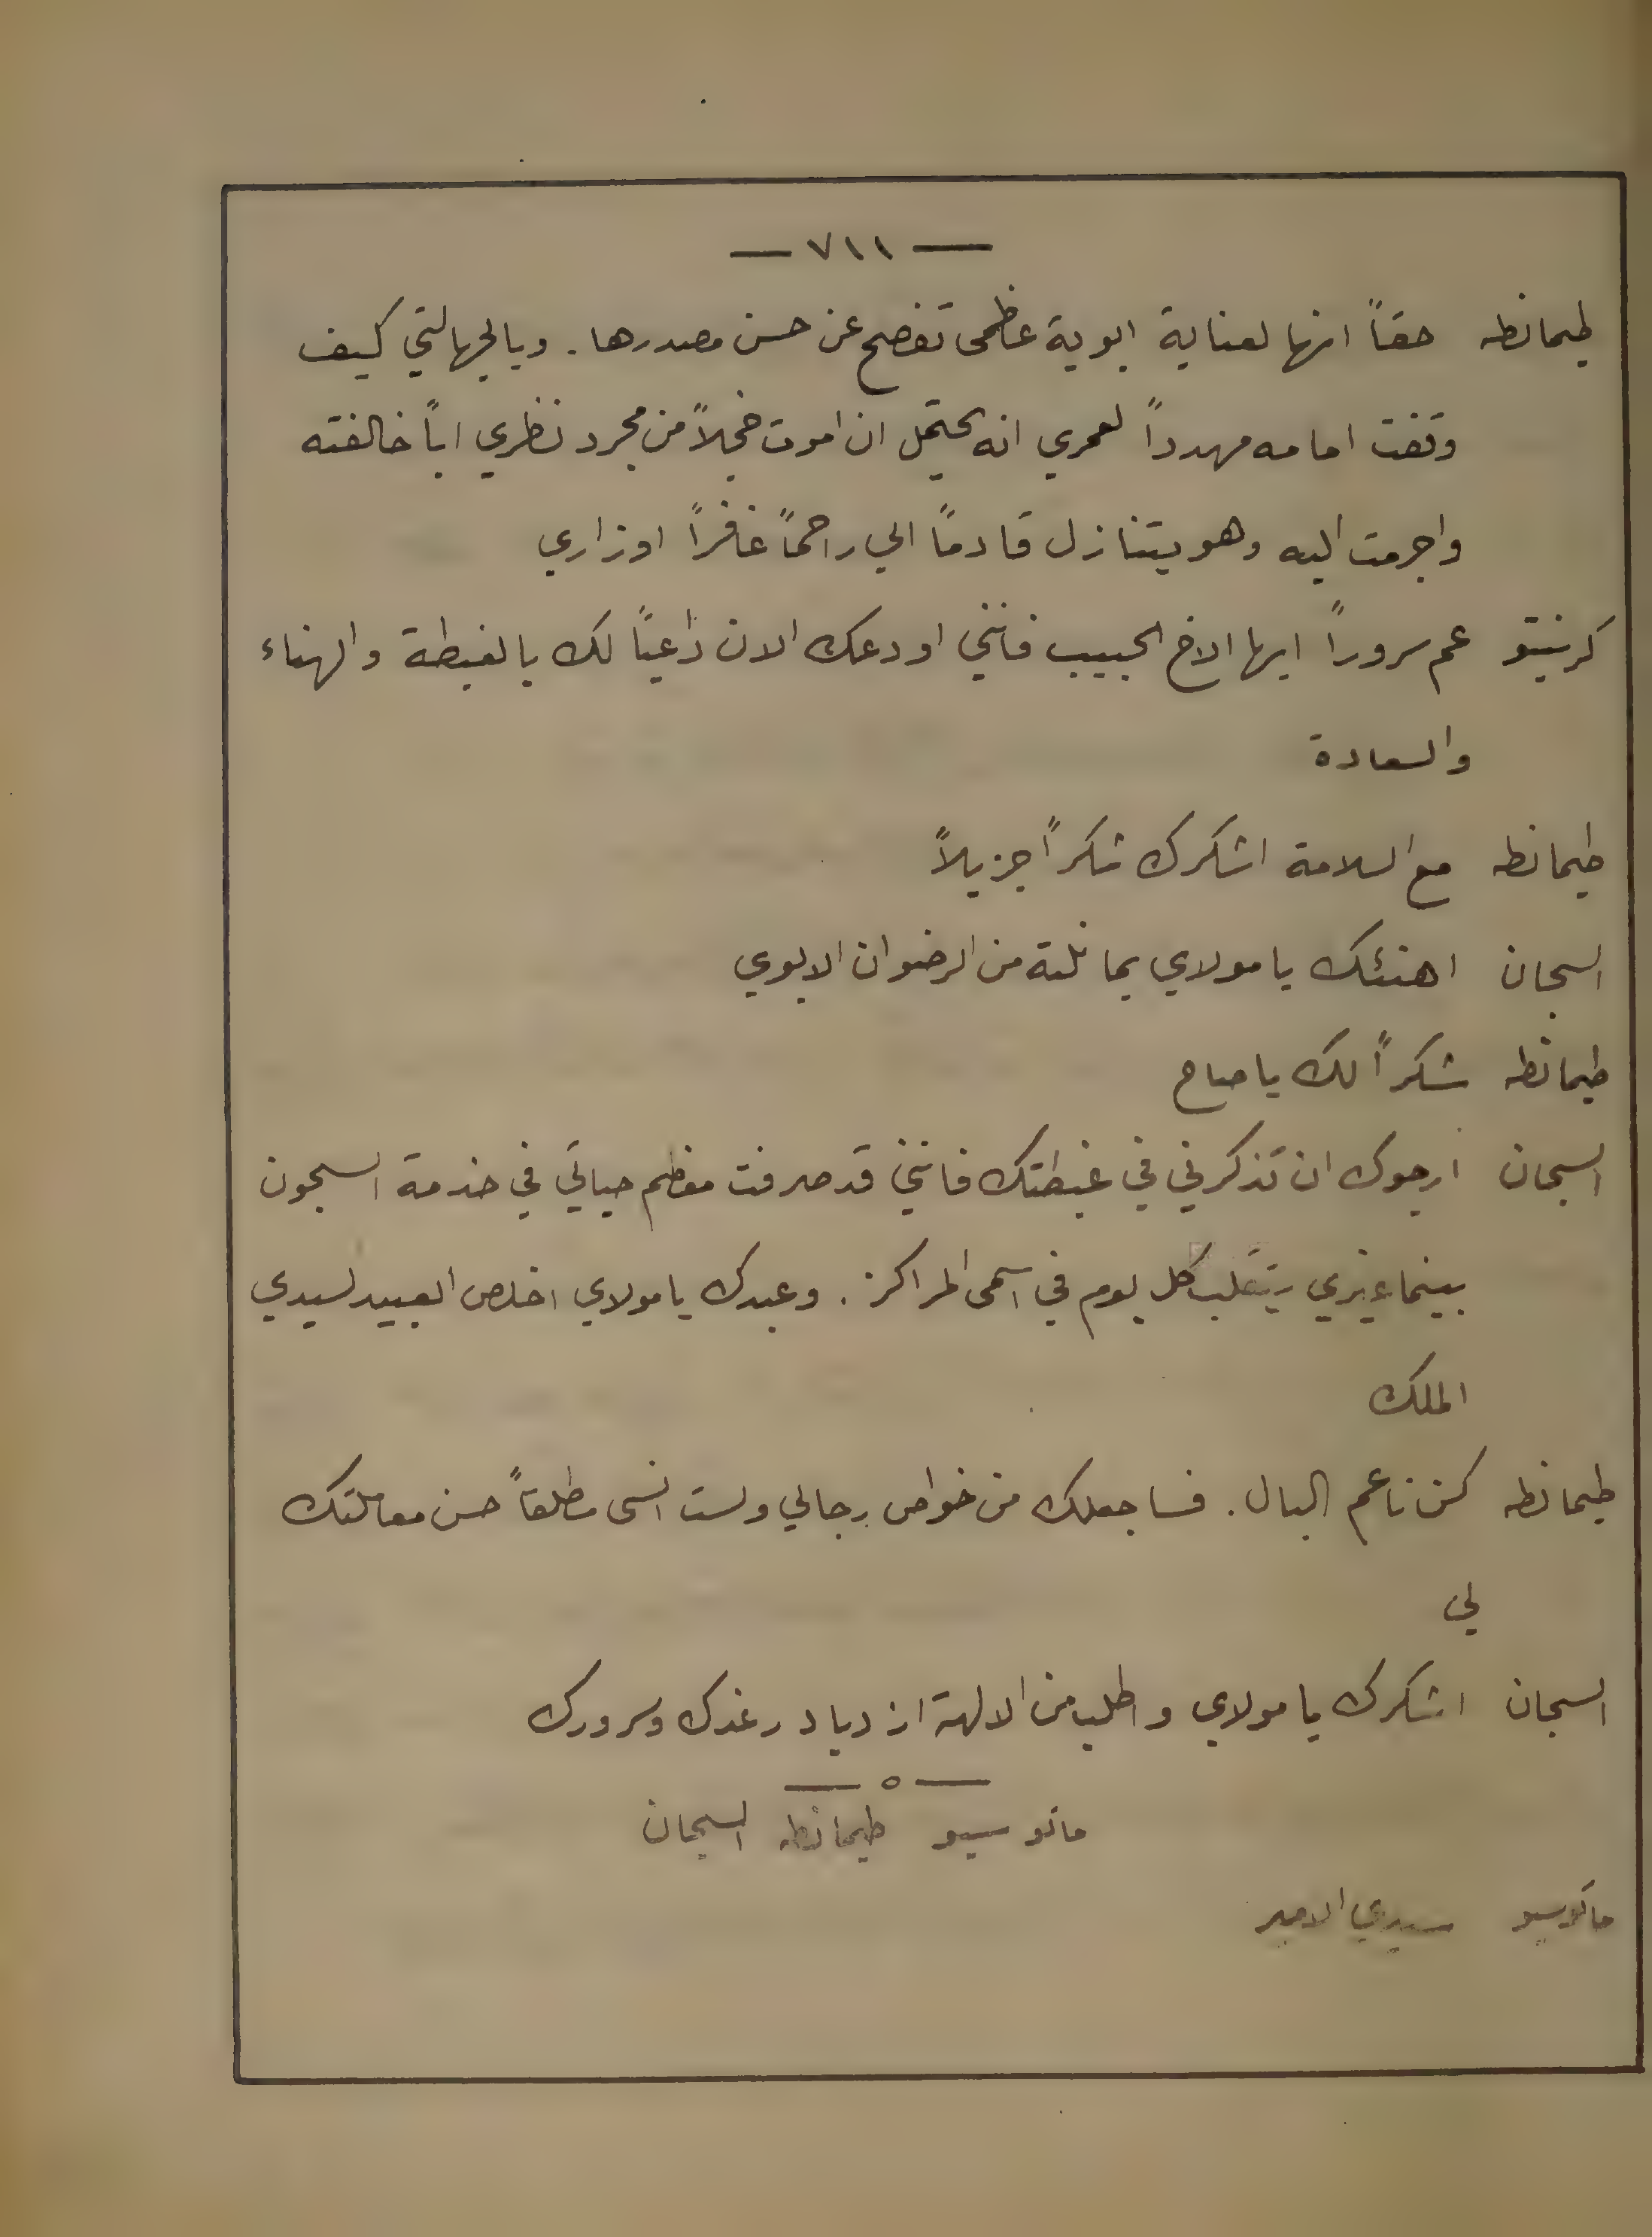 — ٧١١ —
طيمانطه حقاً انها لعناية ابوية عظمى تفصح عن حسن مصدرها. ويالجهالتي كيف
وقفت امامه مهدداً لعمري انه يحتمل ان اموت خجلاً من مجرد نظري اباً خالفته
واجرمت اليه وهو يتنازل قادماً الي راحماً غافراً اوزاري
كرنيتو عم سروراً ايها الاخ الحبيب فانني اودعك الان داعياً لك بالغبطة والهناء
والسعادة
طيمانطه مع السلامة اشكرك شكراً جزيلاً
السجان اهنئك يا مولاي بما نلته من الرضوان الابوي
طيمانطه شكراً لك يا صاح
السجان ارجوك ان تذكرني في غبطتك فانني قد صرفت معظم حياتي في خدمة السجون
بينما غيري يتقلب كل يوم في اسمى المراكز. وعبدك يا مولاي اخلص العبيد لسيدي
الملك
طيمانطه كن ناعم البال. فساجعلك من خواص رجالي ولست انسى مطلقاً حسن معاملتك
لي
السجان اشكرك يا مولاي واطلب من الالهة ازدياد رغدك وسرورك
— ٥ —
ماتوسيو طيمانطه السجان
ماتوسيو سيدي الامير